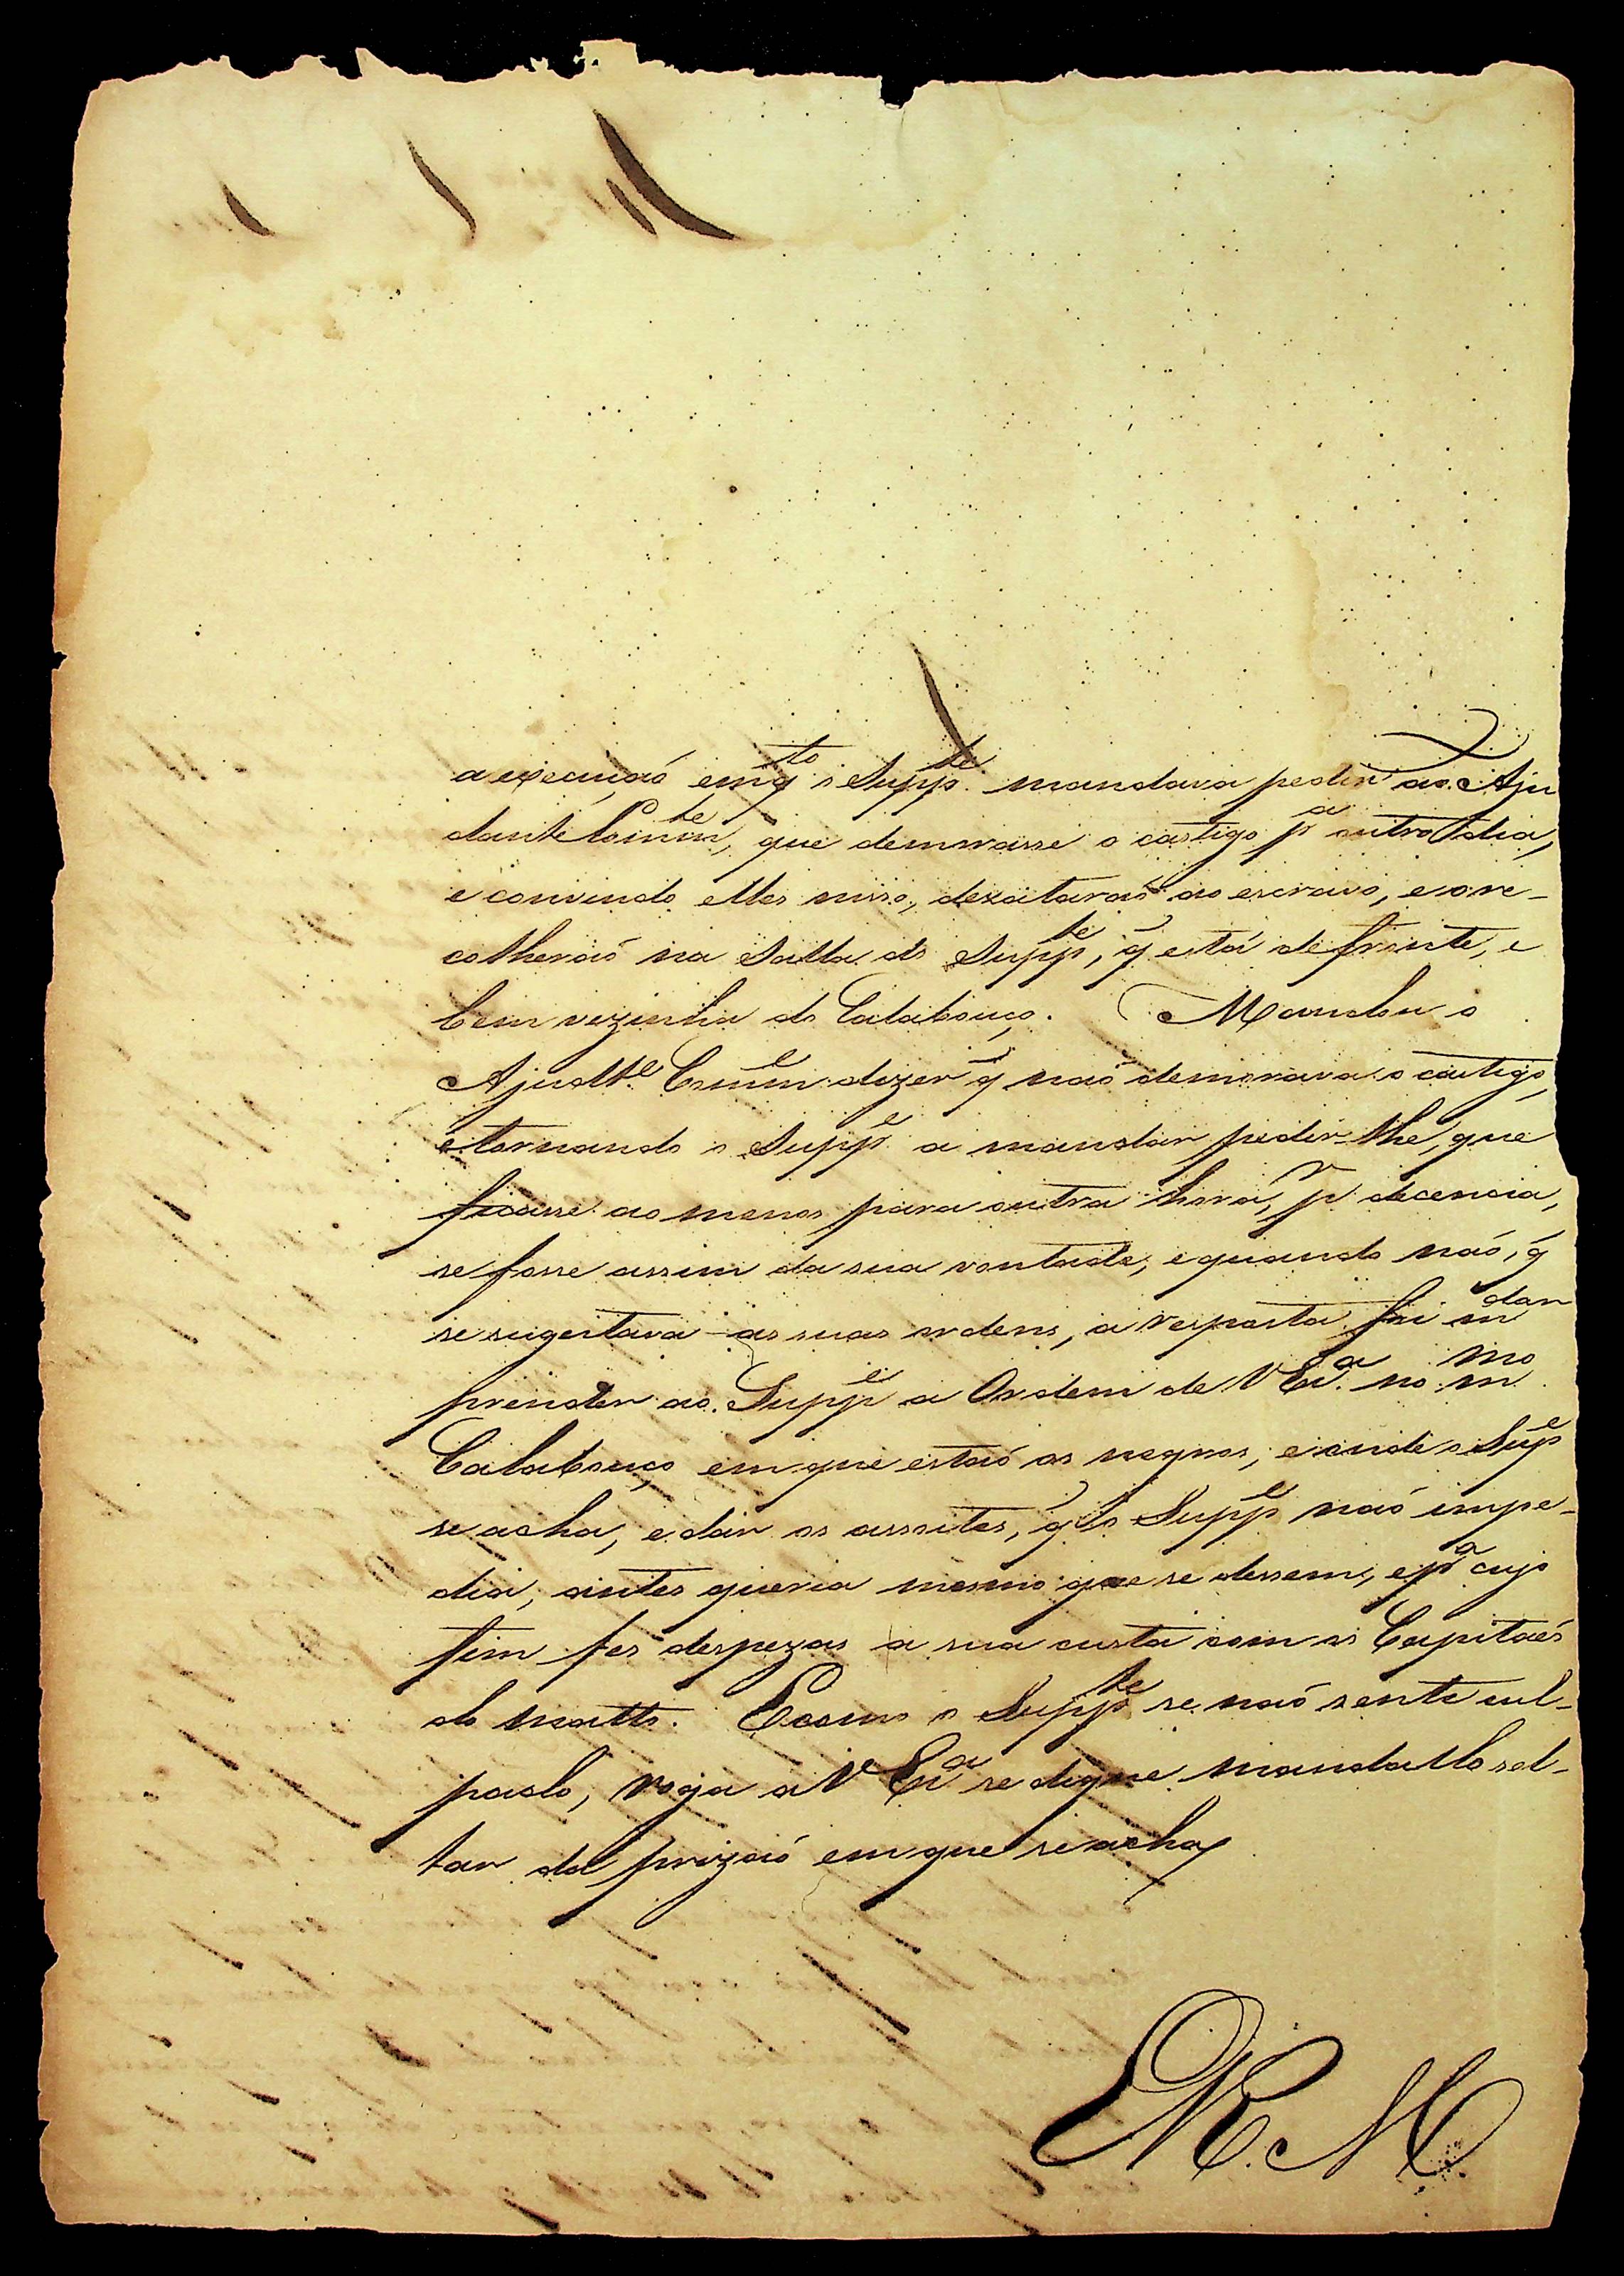 a execuçaõ emq.to o Supp.te mandava pedir ao Aju
dante Comm.te, que demorasse o castigo p.a outro dia,
e convindo elles nisso, dezataraõ ao escravo, e o re-
colheraõ na Salla do Supp.te, q̃ está defronte, e
bem vezinha do Calabouço. Mandou o
Ajud.te Comm.e dizer q̃ naõ demorava o castigo,
e tornando o Supp.e a mandar pedir-lhe, que
ficasse ao menos para outra hora, p.r decencia,
se fosse assim da sua vontade, e quando naõ, q̃
se sugeitava as suas ordens, a resposta foi m.dar
prender ao Supp.e a Ordem de V Ex.a no m.mo
Calabouço em que estaõ os negros, e onde o Sup.e
se acha, e dar os assoites, q̃ o Supp.e naõ impe-
dia, antes queria mesmo que se dessem, e p.a cujo
fim fes despezas a sua custa com os Capitaẽs
do matto. E como o Supp.te se naõ sente cul-
pado, roga a V Ex.a se digne mandallo sol-
tar da prizaõ em que se acha
E R. M.